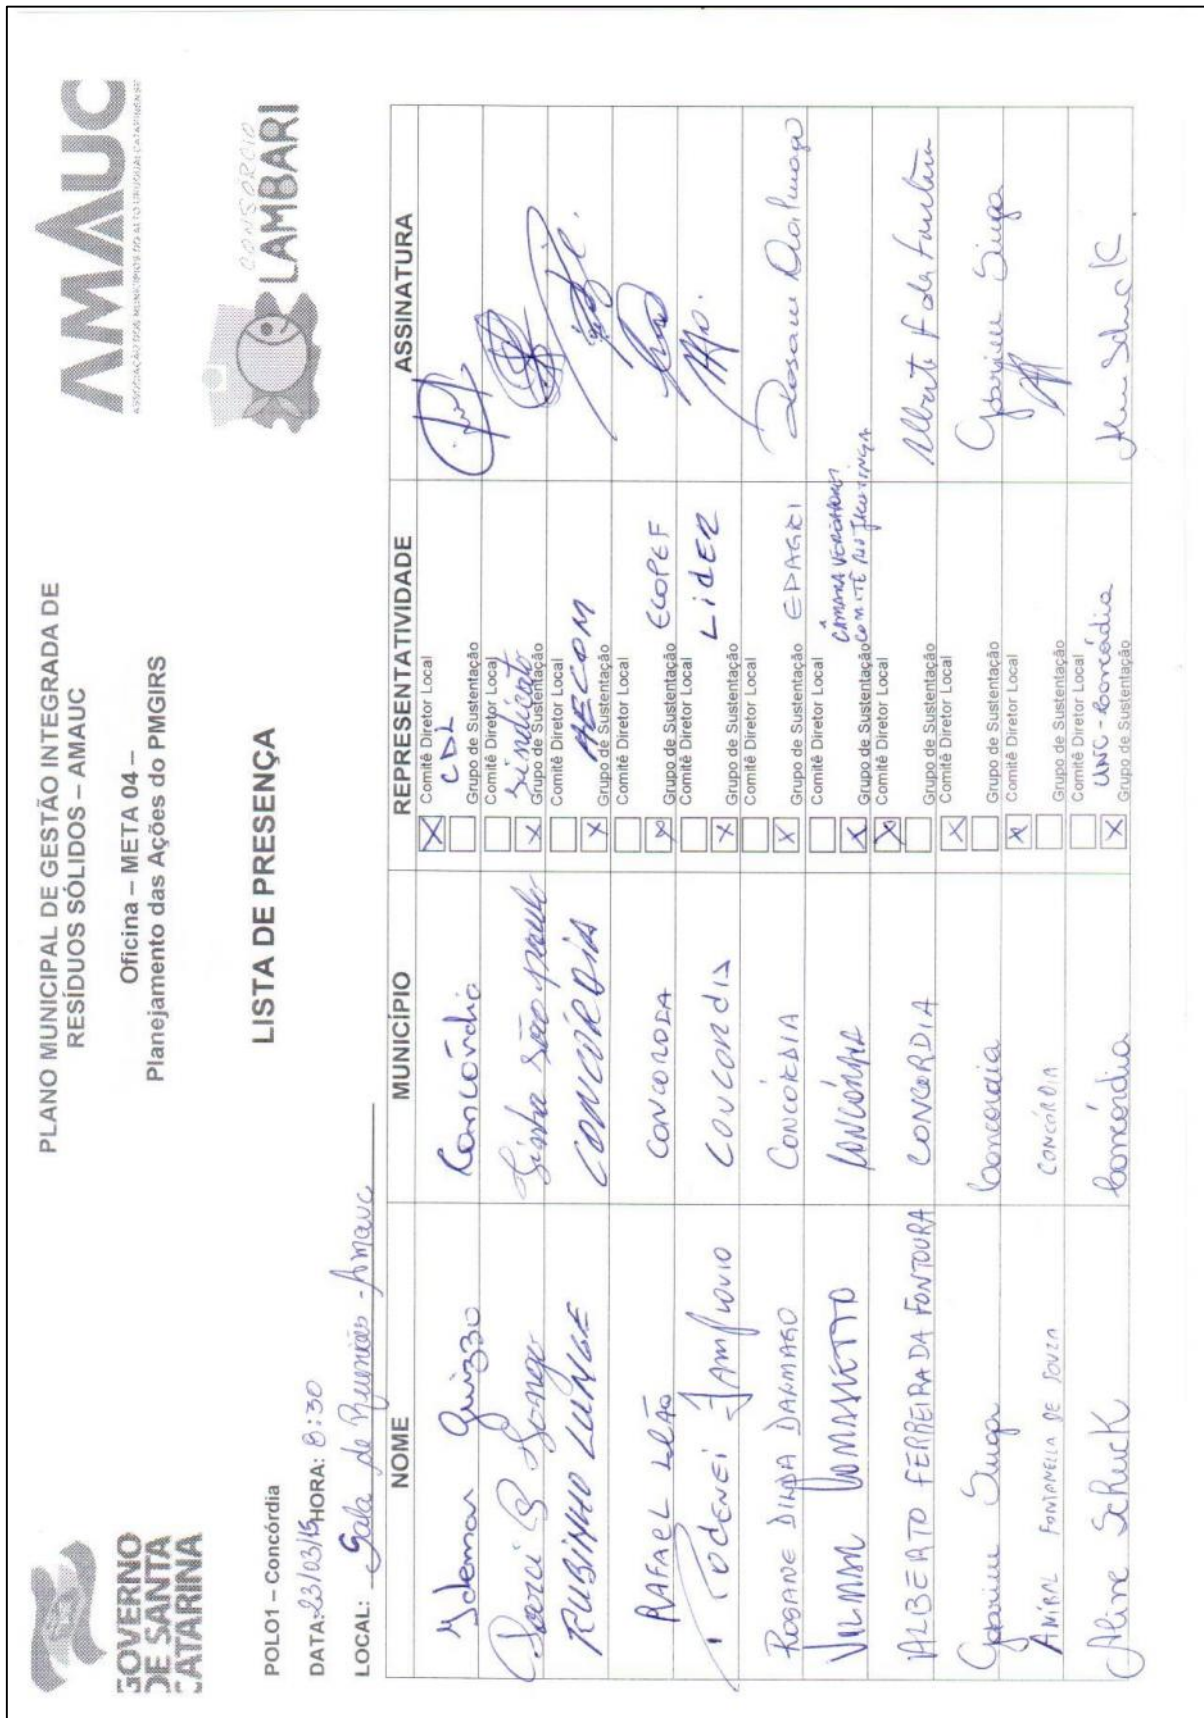 GOVERNO
DE SANTA
CATARINA
PLANO MUNICIPAL DE GESTÃO INTEGRADA DE
RESÍDUOS SÓLIDOS – AMAUC
Oficina – META 04 –
Planejamento das Ações do PMGIRS
AMAUC
ASSOCIAÇÃO DOS MUNICÍPIOS DO ALTO URUGUAI CATARINENSE
CONSÓRCIO
LAMBARI
LISTA DE PRESENÇA
POLO1 – Concórdia
DATA: 23/03/15 HORA: 8:30
LOCAL: Sala de Reuniões - Amauc
NOME MUNICÍPIO REPRESENTATIVIDADE ASSINATURA
Idemar Guizzo Concórdia X Comitê Diretor Local
CDL
Grupo de Sustentação
Comitê Diretor Local
Sindicato
X Grupo de Sustentação
RUBINHO LUNGE CONCÓRDIA Comitê Diretor Local
AECOM
X Grupo de Sustentação
RAFAEL LEÃO CONCORDIA Comitê Diretor Local
X Grupo de Sustentação ECOPEF
CONCORDIA Comitê Diretor Local
X Grupo de Sustentação LIDER
ROSANE DILDA DALMAGO CONCÓRDIA Comitê Diretor Local
X Grupo de Sustentação EPAGRI Rosane Dalmago
VILMAR COMASSETTO CONCÓRDIA Comitê Diretor Local
CÂMARA VEREADORES
X Grupo de Sustentação COMITÊ RIO JACUTINGA
ALBERTO FERREIRA DA FONTOURA CONCORDIA X Comitê Diretor Local
Grupo de Sustentação Alberto F da Fontoura
Concordia X Comitê Diretor Local
Grupo de Sustentação
ANIBAL FONTANELLA DE SOUZA CONCÓRDIA X Comitê Diretor Local
Grupo de Sustentação
Aline Schuck Concórdia Comitê Diretor Local
UNC - Concórdia
X Grupo de Sustentação Aline Schuck